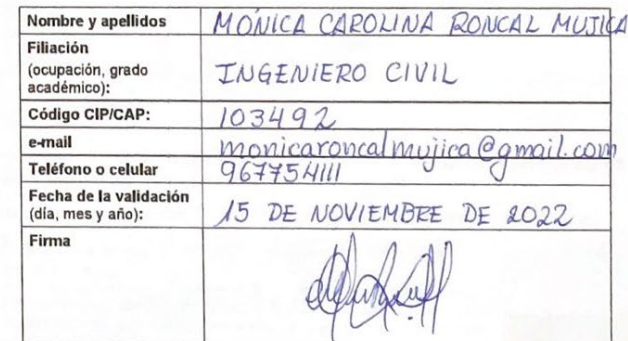 Nombre y apellidos MONICA CAROLINA RONCAL MUJICA
Filiación
(ocupación, grado
académico): INGENIERO CIVIL
Código CIP/CAP: 103492
e-mail monicaroncalmujica@gmail.com
Teléfono o celular 967754111
Fecha de la validación
(día, mes y año): 15 DE NOVIEMBRE DE 2022
Firma